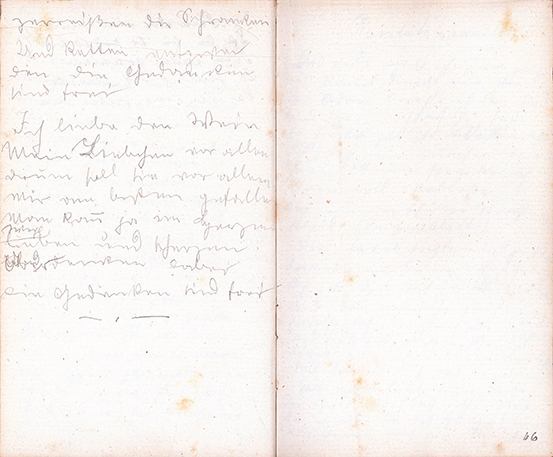 zerreißen die Schranken
Und Ketten entzwei
den die Gedanken
sind frei
Ich liebe den Wein
Mein Liebchen vor allen
drum soll sie vor allem
mir am besten gefallen
Man kann ja im Herzen
lieben und scherzen
denken dabei
die Gedanken sind frei
66